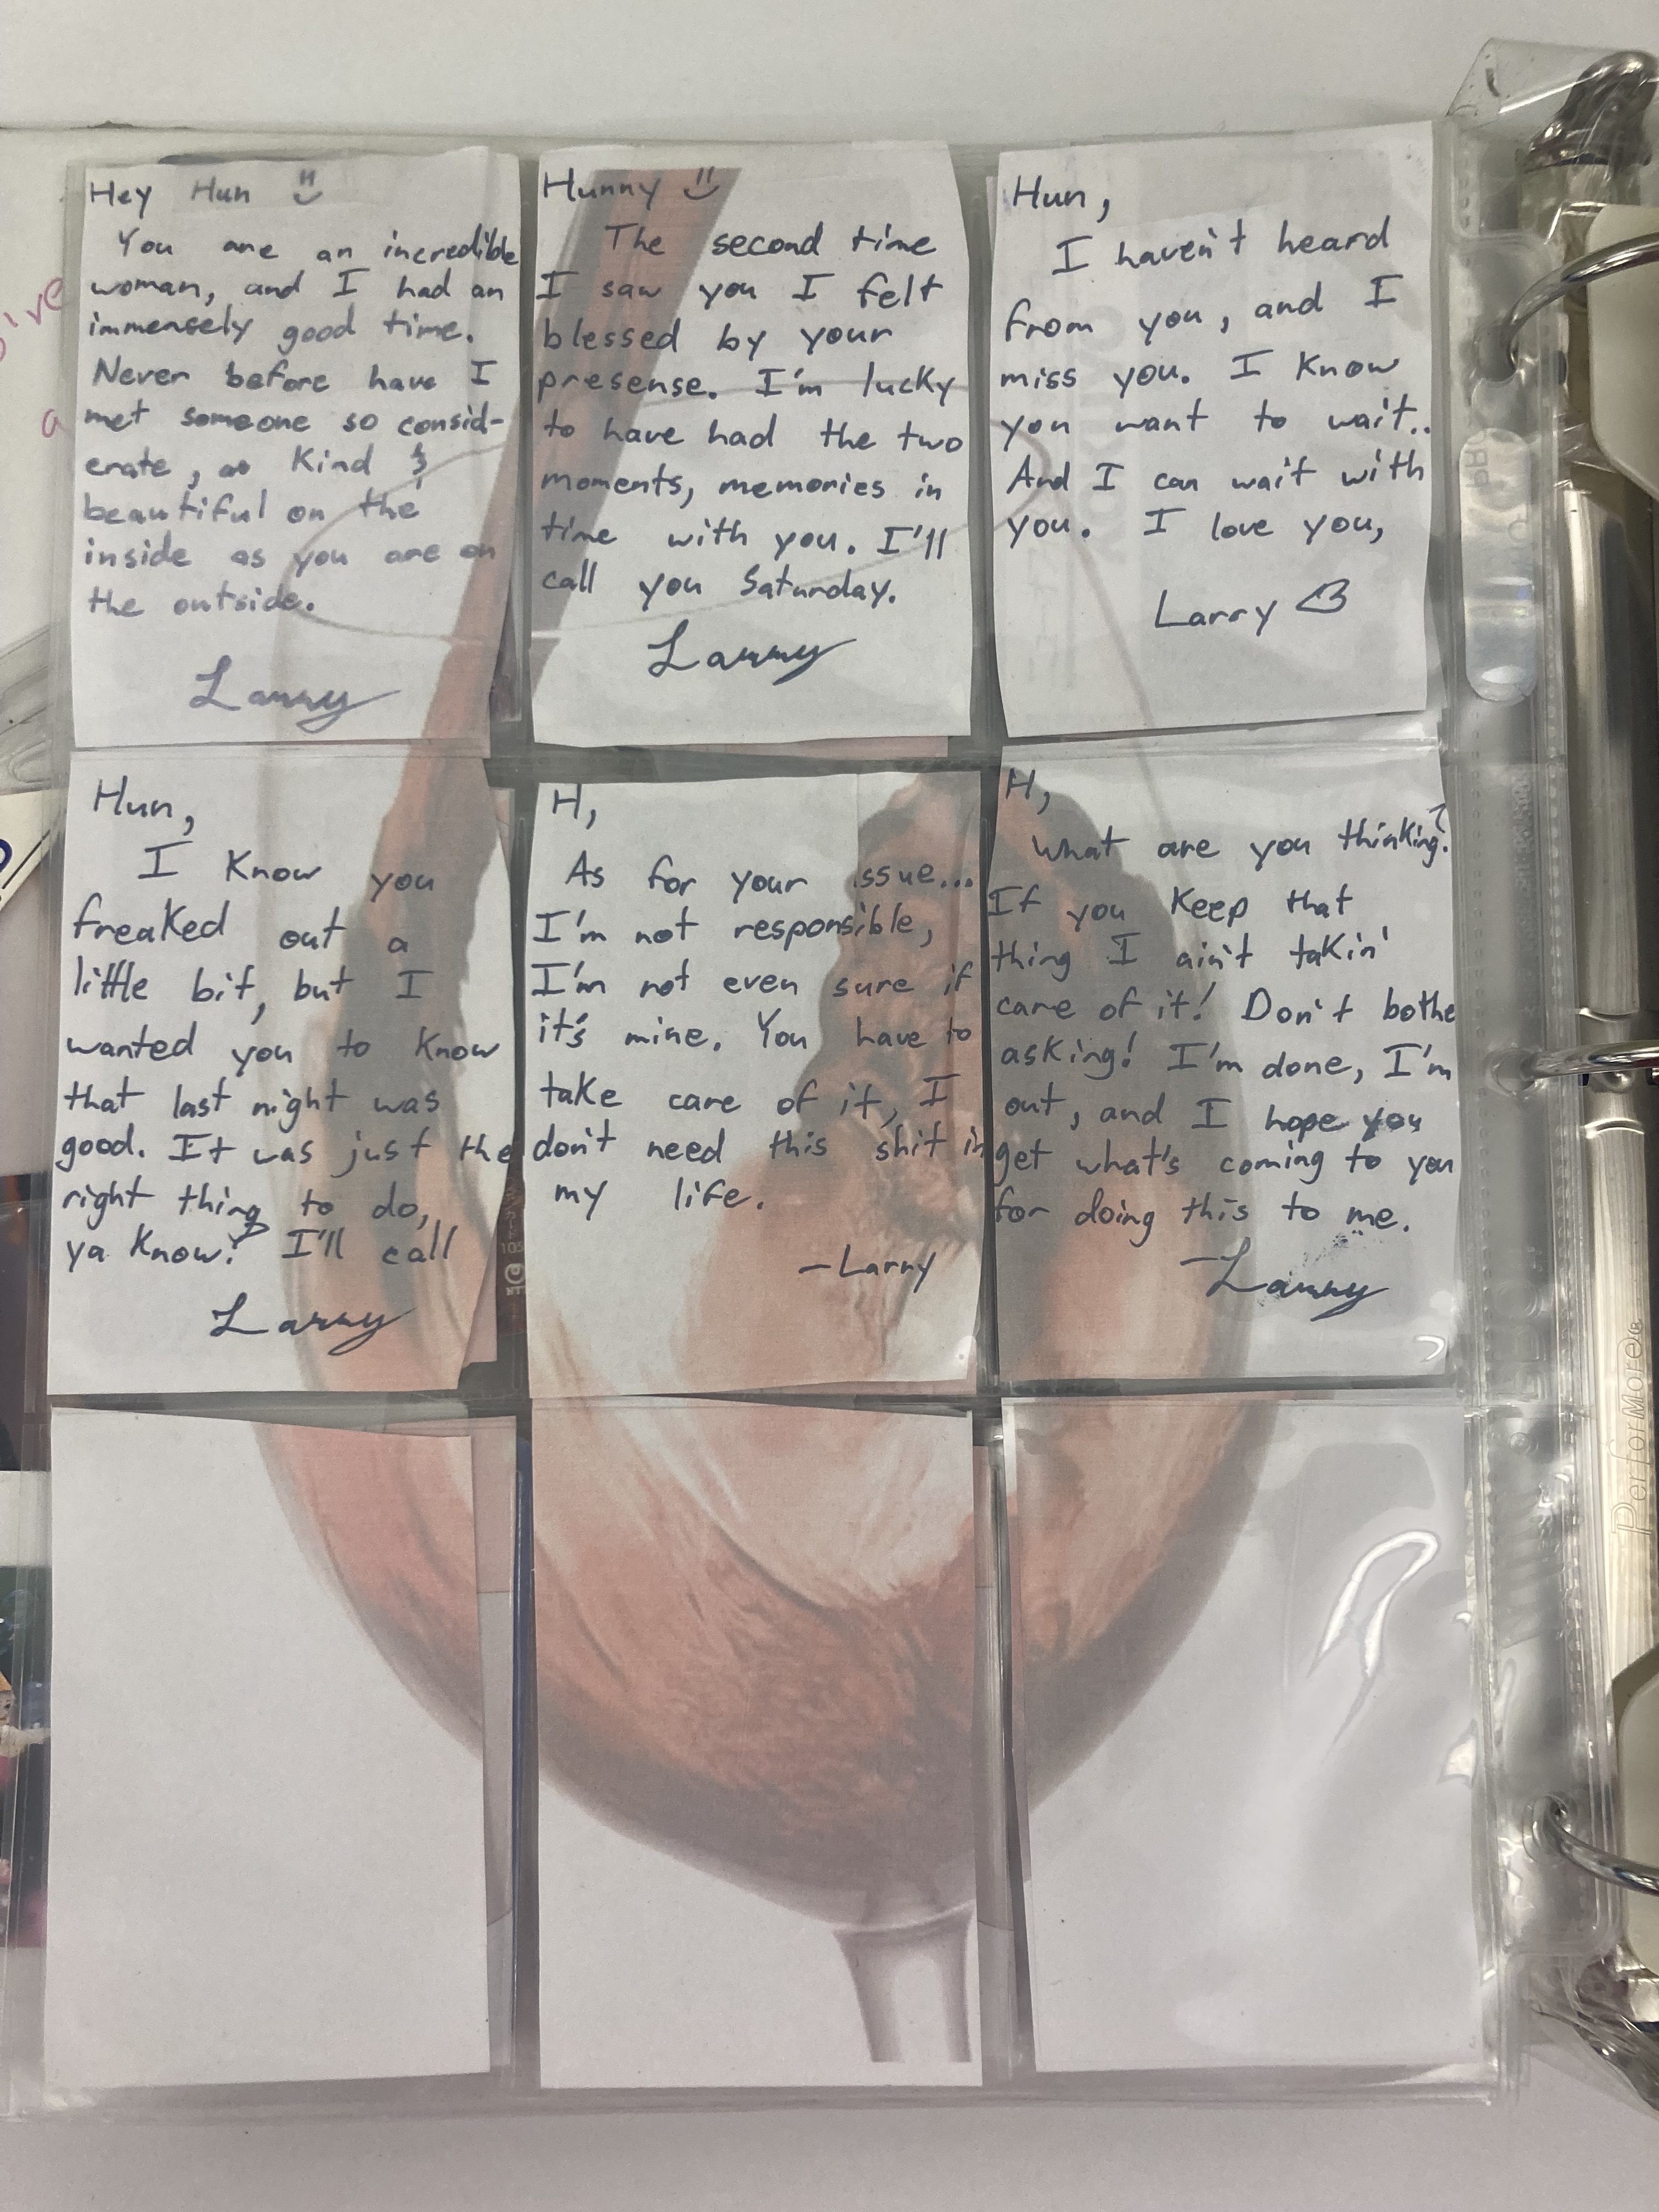 Hey Hun
You are an incredible
woman, and I had an
immensely good time.
Never before have I
met someone so consid-
erate, as kind &
beautiful on the
inside as you are on
the outside.
Larry
Hunny
The second time
I saw you I felt
blessed by your
presense. I'm lucky
to have had the two
moments, memories in
time with you. I'll
call you Saturday.
Larry
Hun,
I haven't heard
from you, and I
miss you. I know
you want to wait..
And I can wait with
you. I love you,
Larry <3
Hun,
I know you
freaked out a
little bit, but I
wanted you to know
that last night was
good. It was just the
right thing to do,
ya know? I'll call
Larry
H,
As for your issue...
I'm not responsible,
I'm not even sure if
it's mine. You have to
take care of it, I
don't need this shit in
my life.
-Larry
H,
What are you thinking?
If you keep that
thing I ain't takin'
care of it! Don't bothe
asking! I'm done, I'm
out, and I hope you
get what's coming to you
for doing this to me.
-Larry
PerforMore